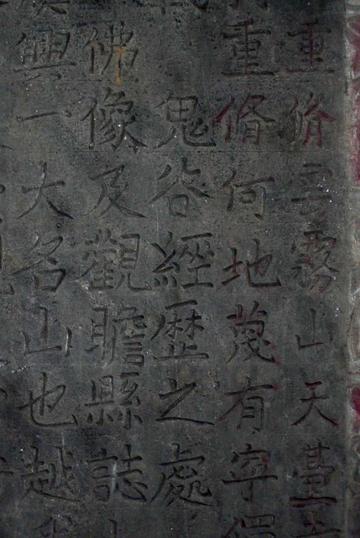 重脩雲霧山天臺
重脩何地蔑有寜
鬼谷經歷之處
佛像及觀瞻縣誌
興一大名山也越